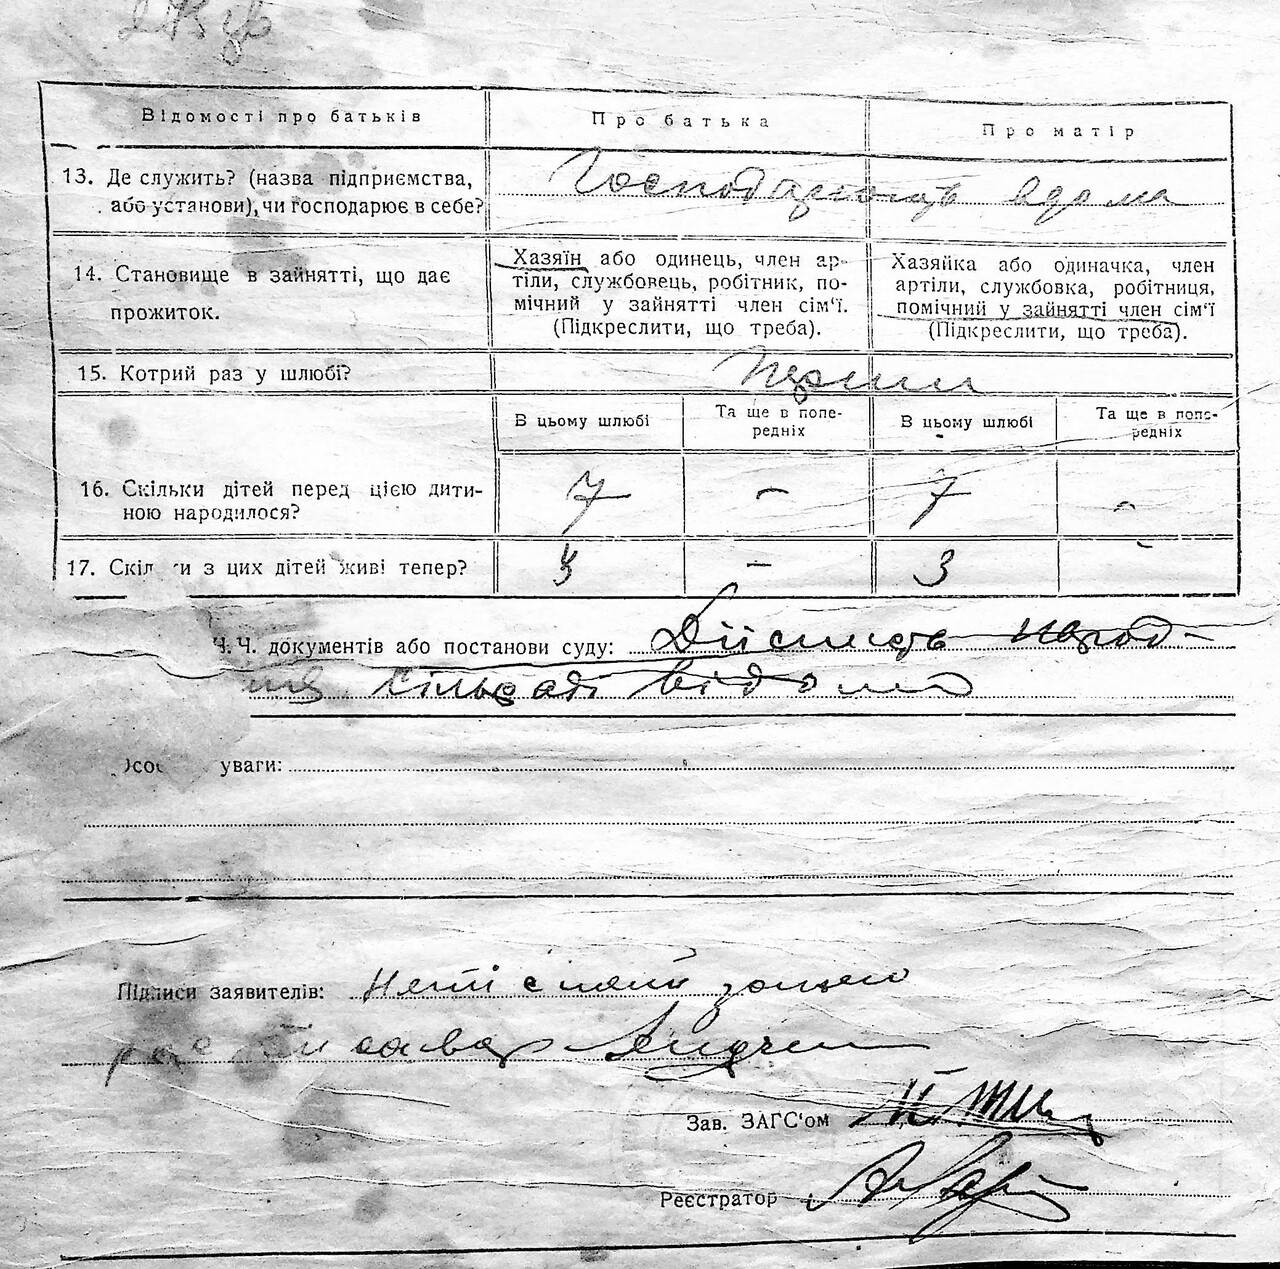 Відомості про батьків
Про батька
Про матір
13. Де служить? (назва підприємства,
або установи), чи господарює в себе?
Господарюють вдома
14. Становище в зайнятті, що дає
прожиток.
Хазяїн або одинець, член ар-
тіли, службовець, робітник, по-
мічний у зайнятті член сім'ї.
(Підкреслити, що треба).
Хазяйка або одиначка, член
артіли, службовка, робітниця,
помічний у зайнятті член сім'ї
(Підкреслити, що треба).
15. Котрий раз у шлюбі?
Перший
В цьому шлюбі
Та ще в попе-
редніх
В цьому шлюбі
Та ще в попе-
редніх
16. Скільки дітей перед цією дити-
ною народилося?
7 – 7 –
17. Скіл и з цих дітей живі тепер?
3 – 3 –
Ч.Ч. документів або постанови суду: Дійсність народ-
ня сільраді відома
Осо уваги:
Підписи заявителів:
Зав. ЗАГС'ом
Реєстратор